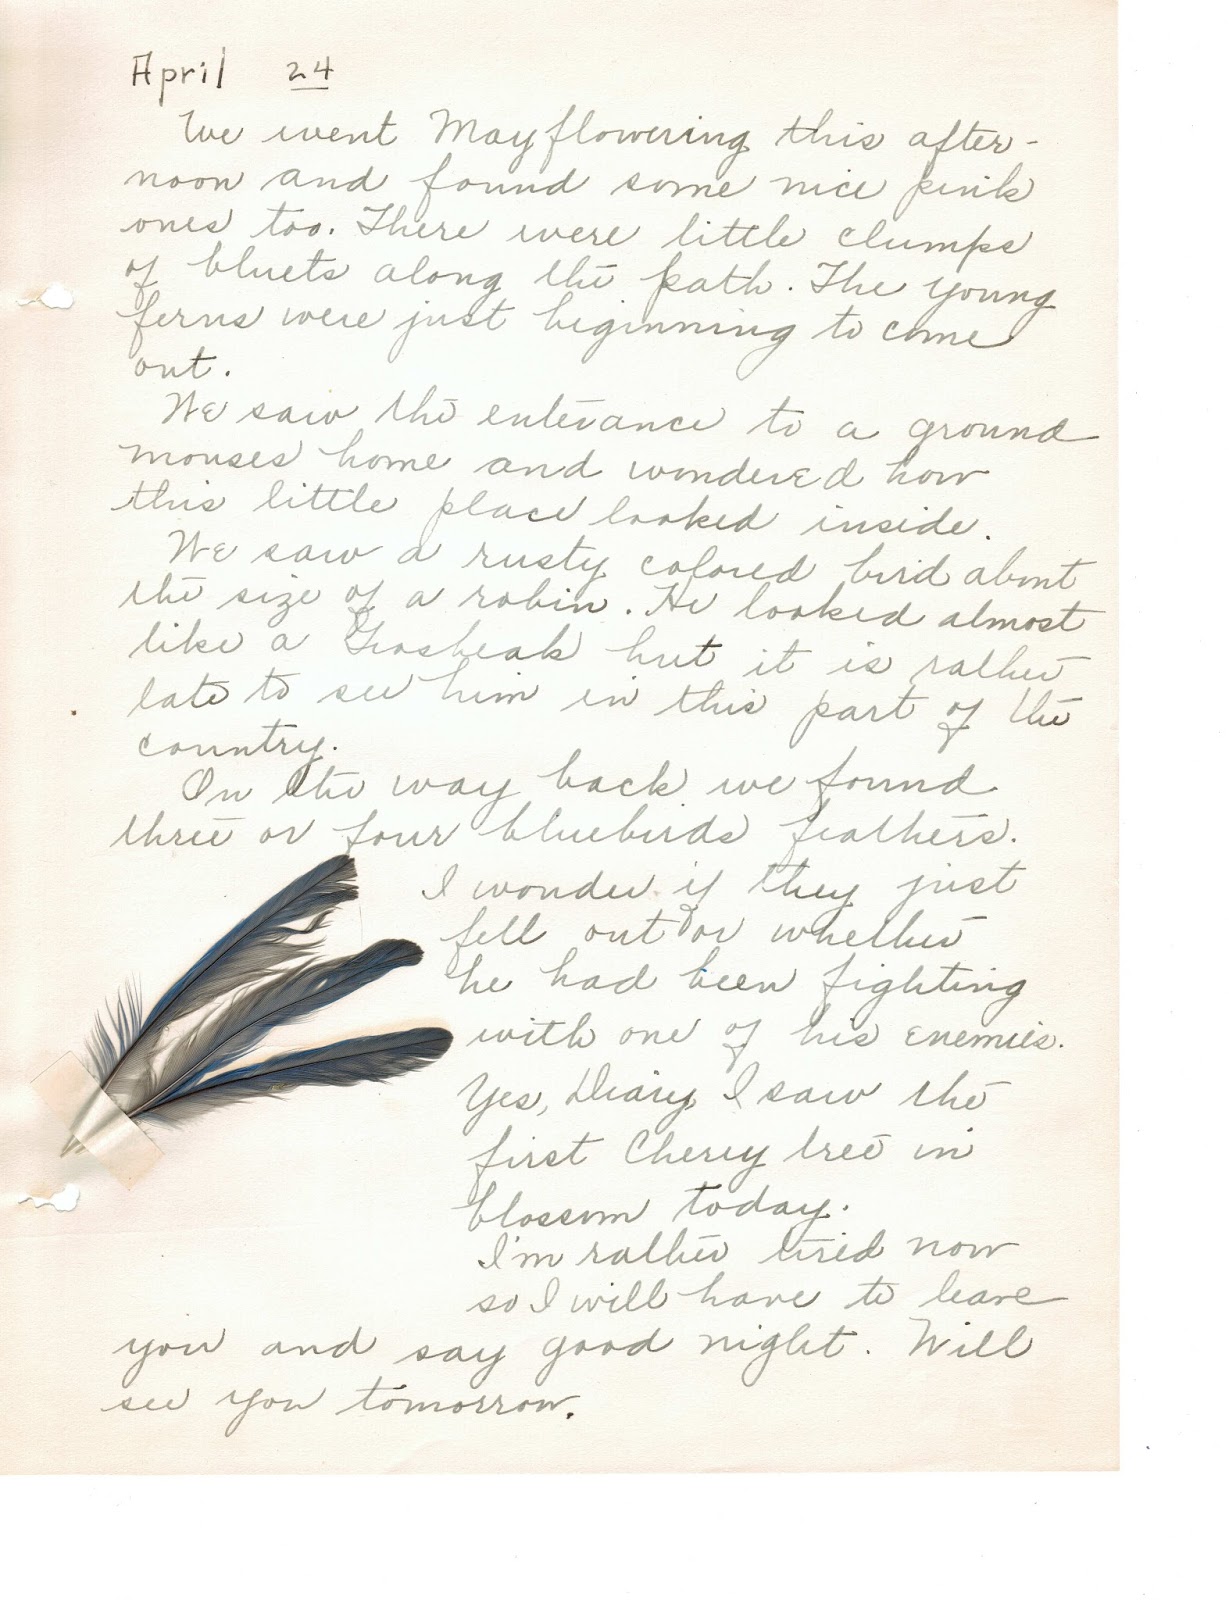 April 24
We went Mayflowering this after-
noon and found some nice pink
ones too. There were little clumps
of bluets along the path. The young
ferns were just beginning to come
out.
We saw the enterance to a ground
mouses home and wondered how
this little place looked inside.
We saw a rusty colored bird about
the size of a robin. He looked almost
like a Grosbeak but it is rather
late to see him in this part of the
country.
On the way back we found
three or four bluebirds feathers.
I wonder if they just
fell out or whether
he had been fighting
with one of his enemies.
Yes, Diary, I saw the
first Cherry tree in
blossom today.
I'm rather tired now
so I will have to leave
you and say good night. Will
see you tomorrow.